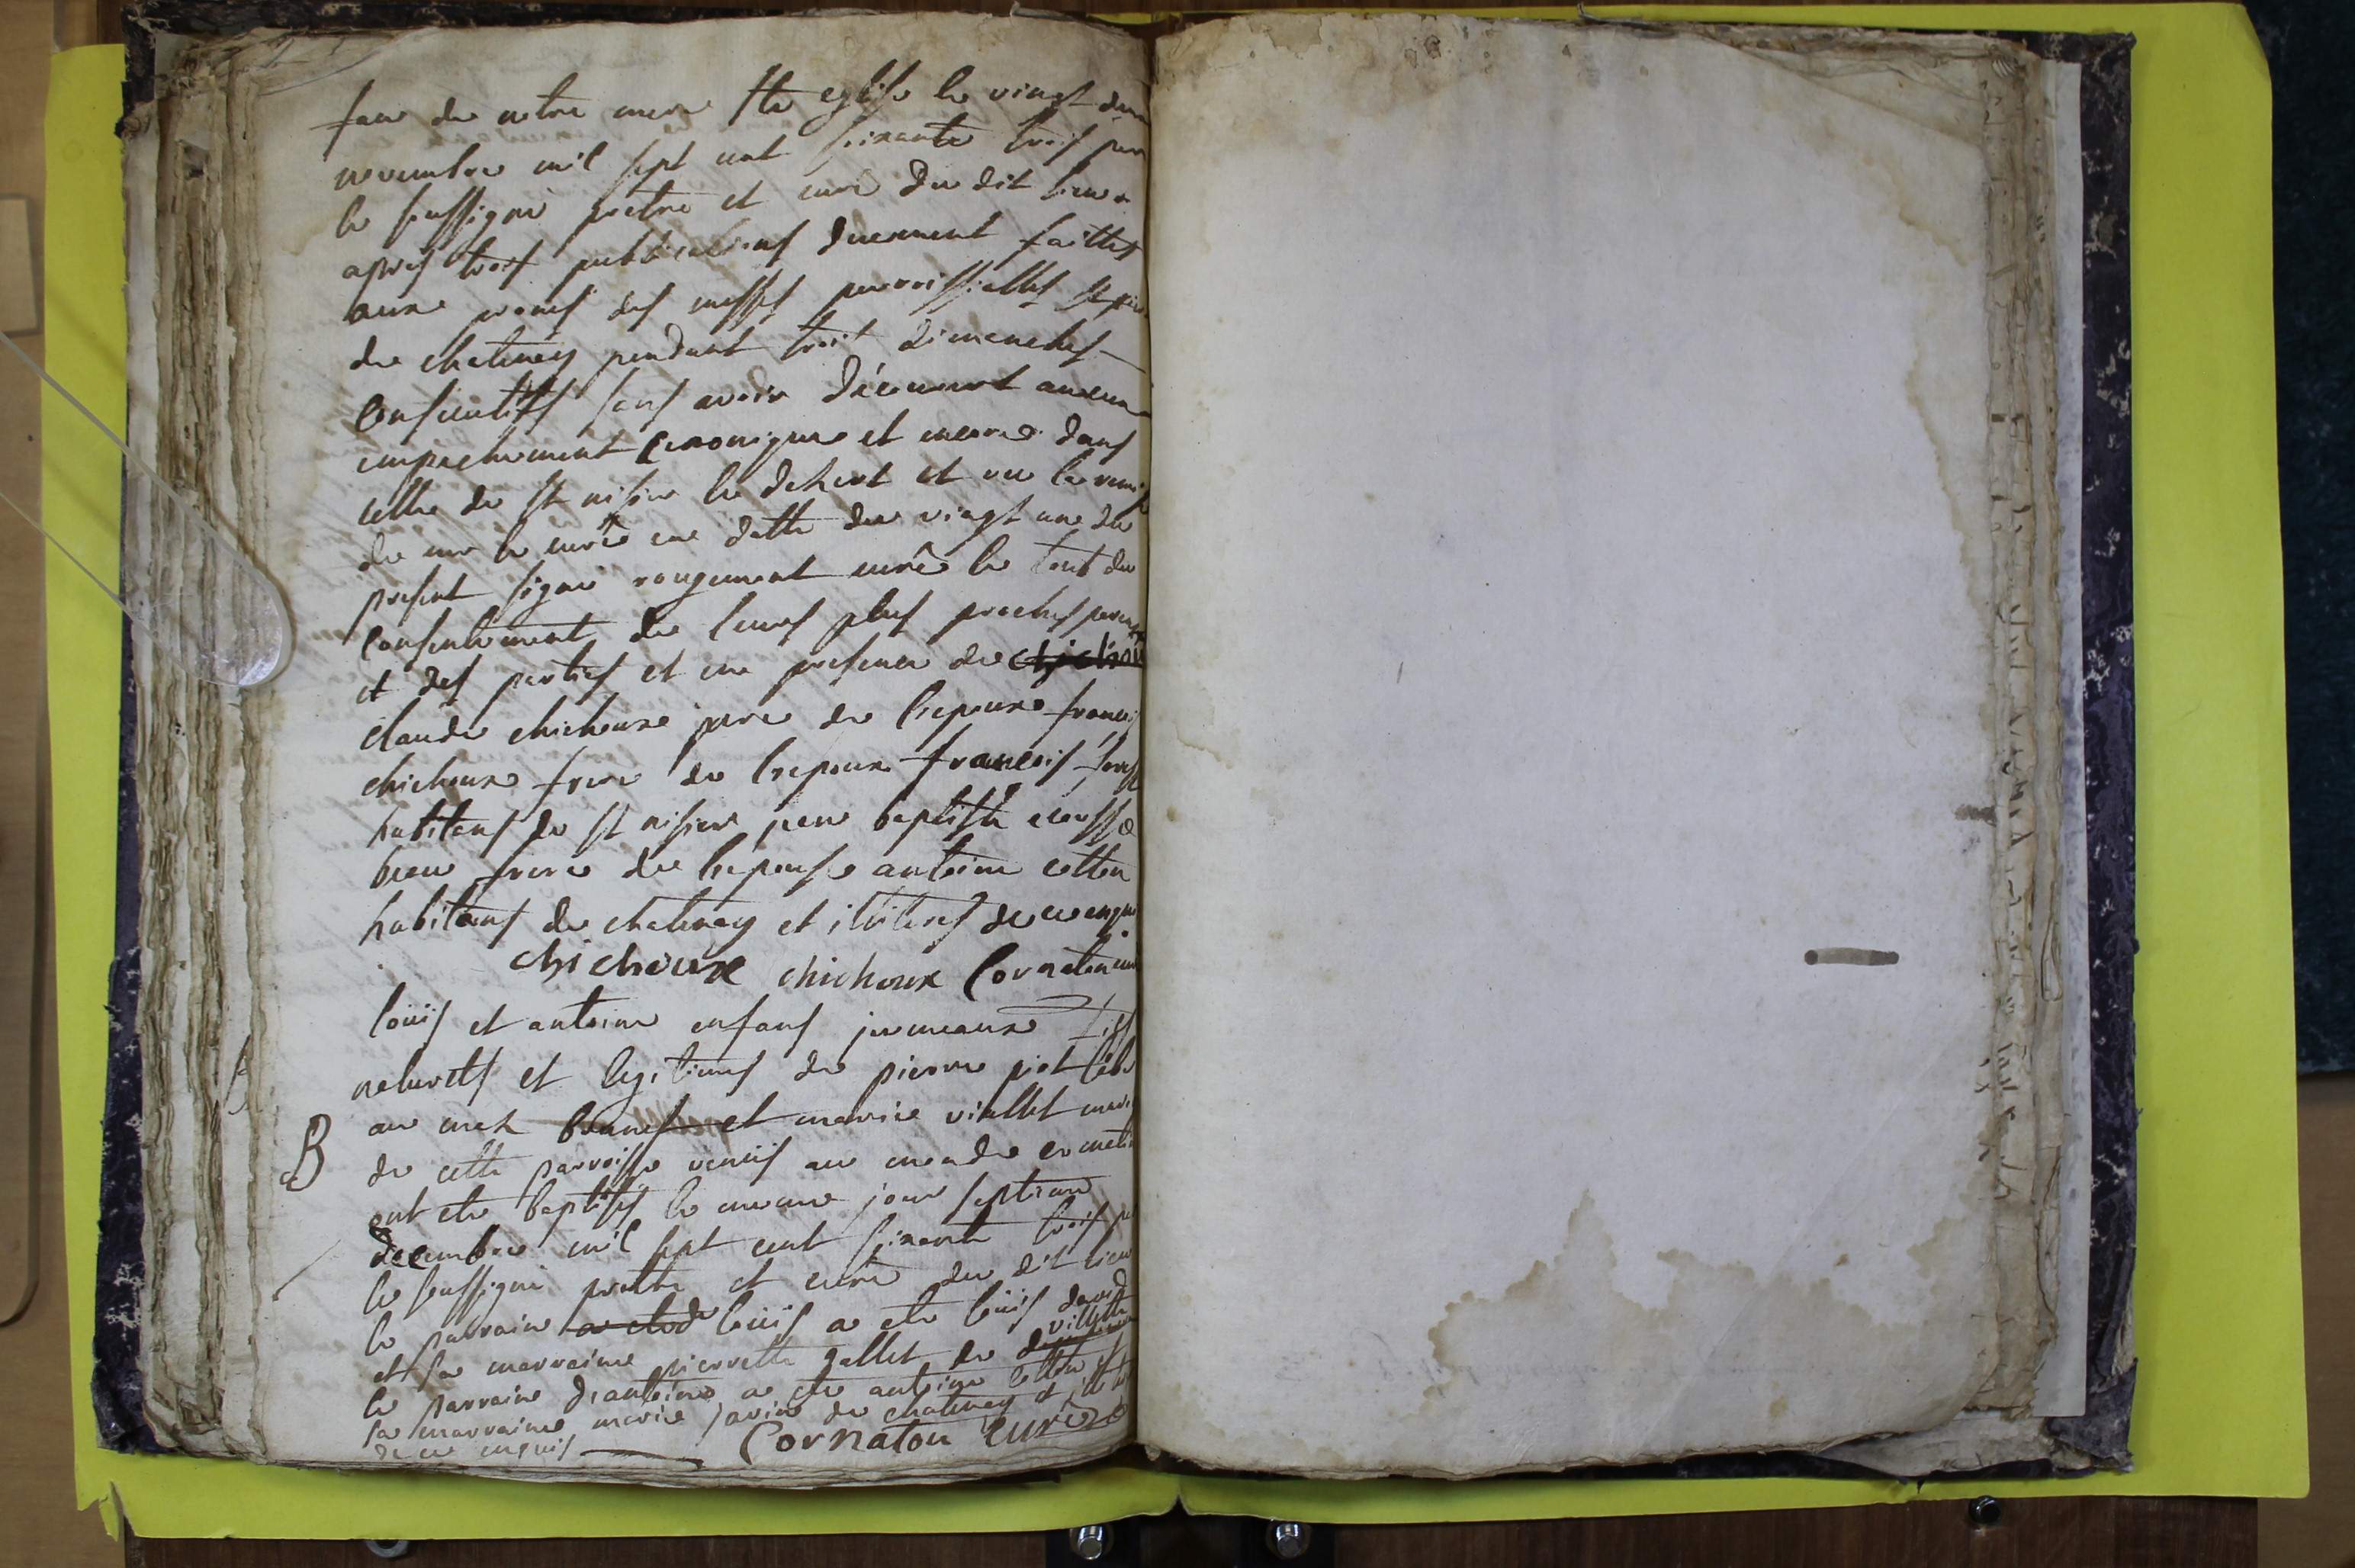 face de notre mere Ste eglise le vingt deux
novembre mil sept cent soixante trois par
le soussigné pretre et curé du dit lieu
apres trois publications duement faittes
aux prones des messes parroissialles
de chatenay pendant trois dimanches
consecutifs sans avoir découvert aucun
empechement canonique et encore dans
celle de St nisier le desert et vu la remise
de mr le curé en datte du vingt un du
present signé rougemont curé le tout du
consentement de leurs plus proches parens
et des parties et en presence de
claude chichoux pere de l'epoux francois
chichoux frere de l'epoux francois
habitans de St nisier jean baptiste
beau frere de l'epouse antoine cotton
habitans de chatenay et illiteres de ce enquis
chichoux chichoux Cornaton curé
loüis et antoine enfans jumeaux
naturels et legitimes de pierre piot
au et marie viallet mariés
de cette parroisse venüs au monde ce matin
ont ete baptisés le meme jour septieme
decembre mil sept cent soixante trois par
le soussigné pretre et curé du dit lieu
le parrain a ete de loüis a ete loüis david
et sa marraine pierrette gallet de villette
le parrain d'antoine a ete antoine cotton et
sa marraine marie javin de chatenay et
de ce enquis Cornaton Curé
B